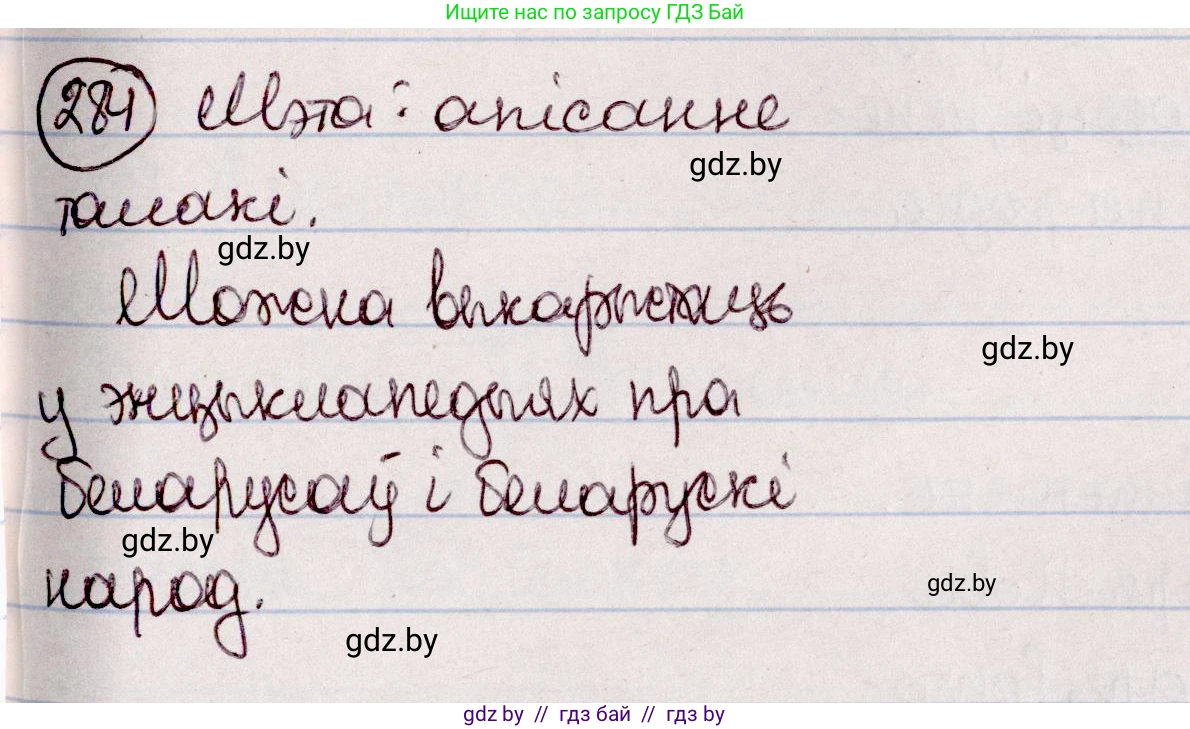 Ищите нас по запросу ГДЗ Бай
284 Мэта: апісанне
gdz.by
талакі.
gdz.by
Можна выкарыстаць
gdz.by
у энцыклапедыях пра
беларусаў і беларускі
gdz.by
народ.
gdz.by
gdz.by
gdz by // гдз бай // гдз by